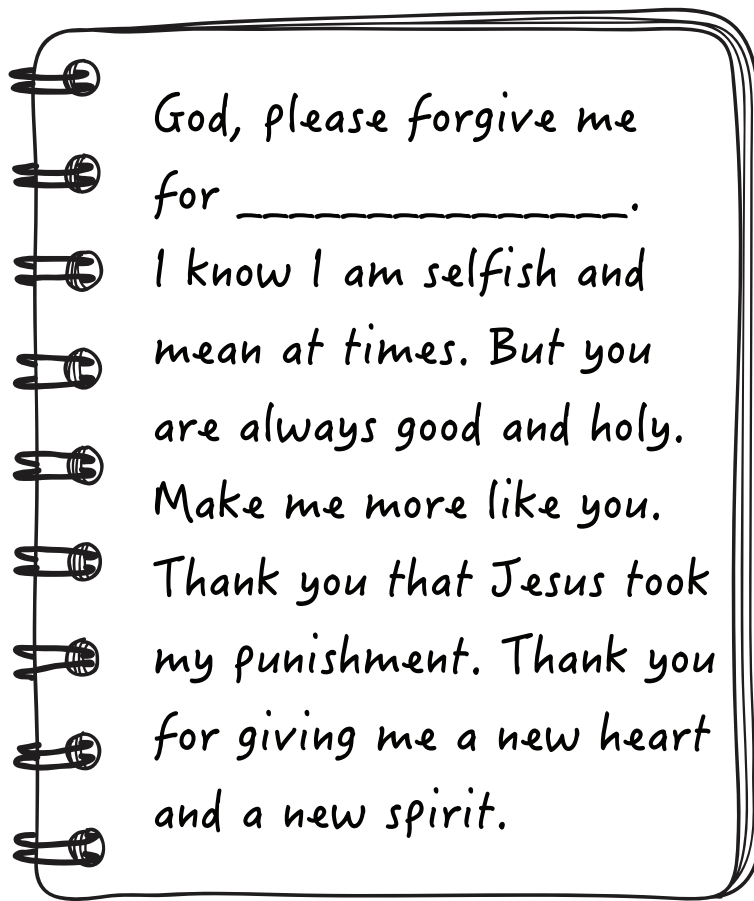 God, please forgive me
for _______________.
I know I am selfish and
mean at times. But you
are always good and holy.
Make me more like you.
Thank you that Jesus took
my punishment. Thank you
for giving me a new heart
and a new spirit.